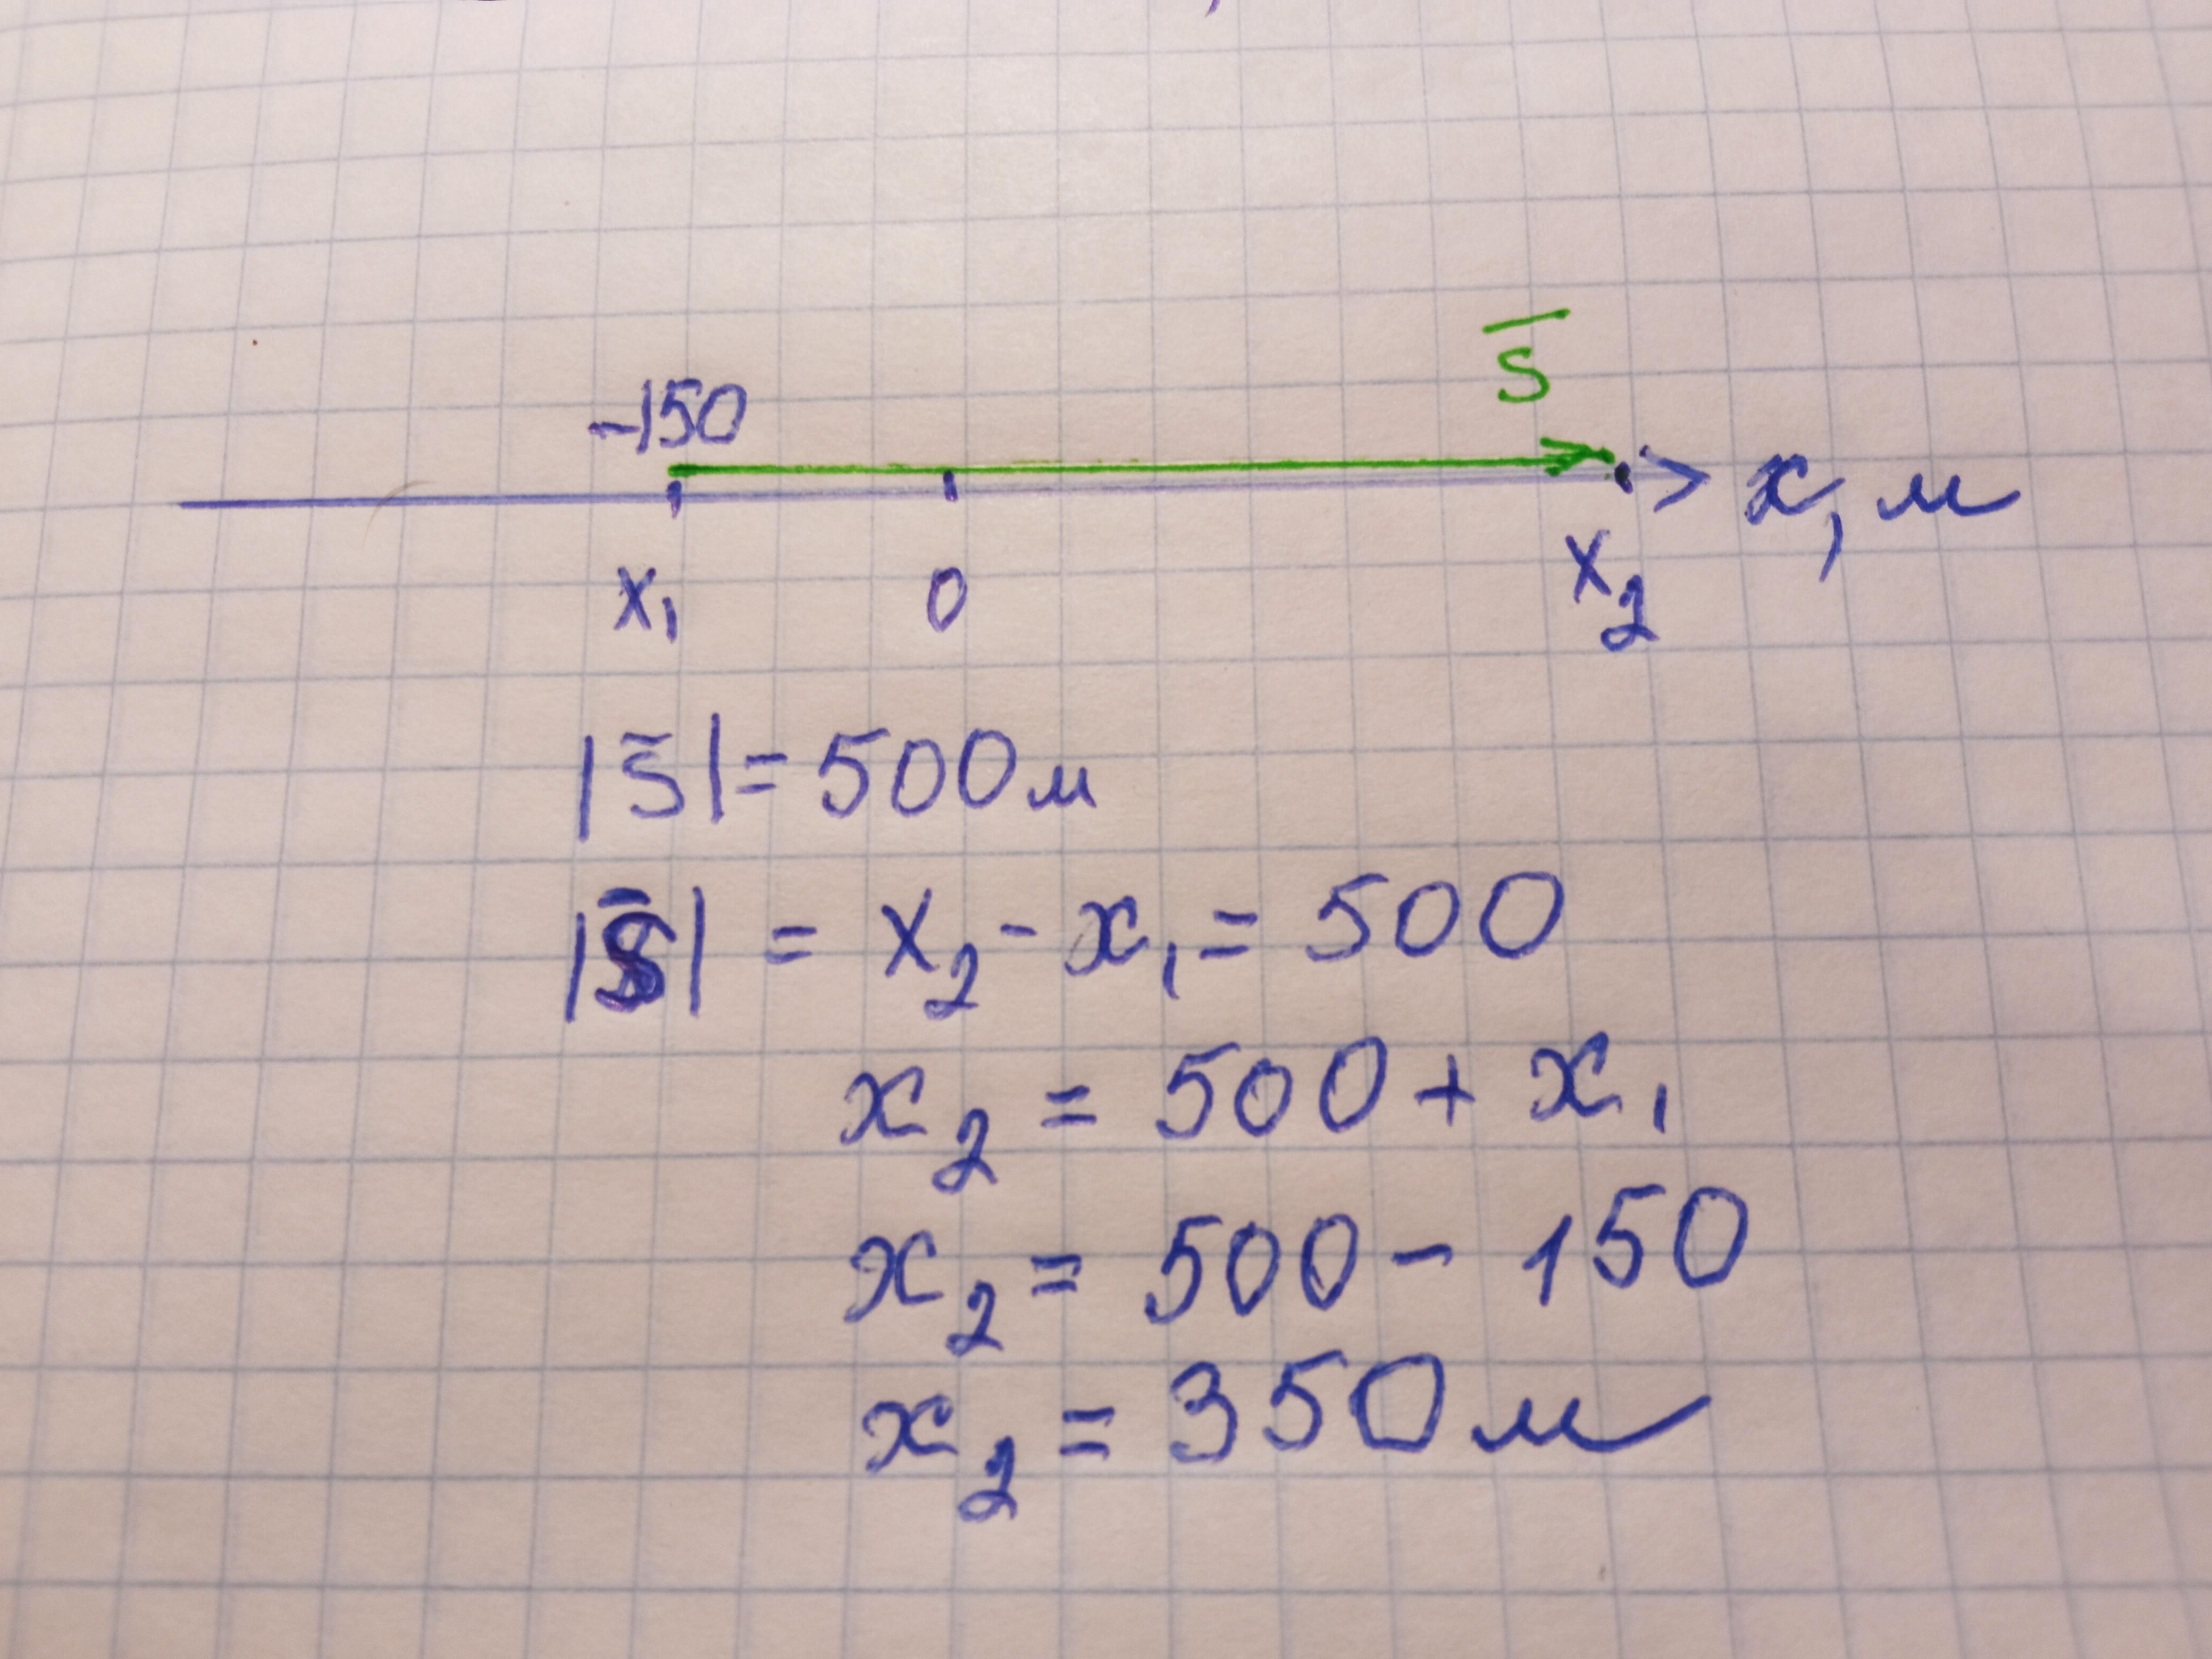 S̅
-150
x, м
x₁ 0 x₂
|S̅| = 500 м
|S̅| = x₂ - x₁ = 500
x₂ = 500 + x₁
x₂ = 500 - 150
x₂ = 350 м